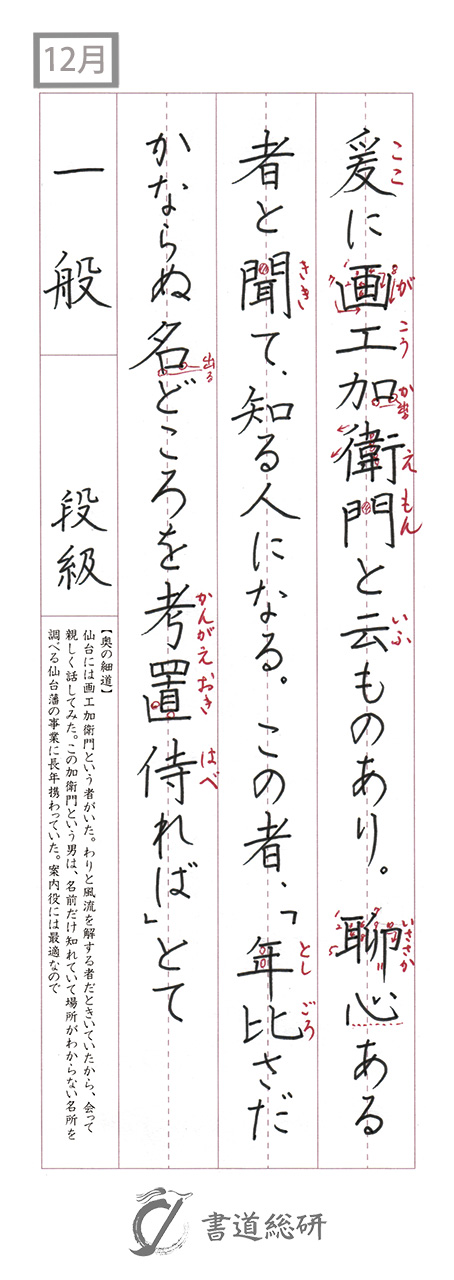 12月
爰に画工加衛門と云ものあり。聊心ある
ここ
が
こう
か
え
もん
いふ
いささか
者と聞て、知る人になる。この者、「年比さだ
きき
とし
ごろ
かならぬ名どころを考置侍れば」とて
出る
かんがえ
おき
はべ
一般
段級
【奥の細道】
仙台には画工加衛門という者がいた。わりと風流を解する者だときいていたから、会って
親しく話してみた。この加衛門という男は、名前だけ知れていて場所がわからない名所を
調べる仙台藩の事業に長年携わっていた。案内役には最適なので
書道総研